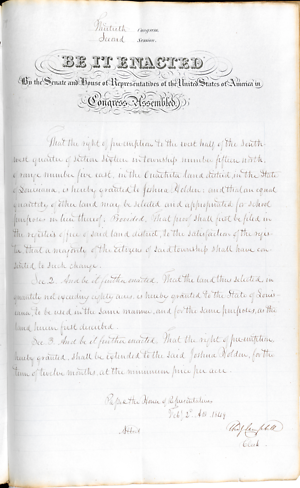 Thirtieth Congress
Second Session
BE IT ENACTED
By the Senate and House of Representatives of the United States of America in
Congress Assembled,
That the right of preemption to the west half of the South-
west quarter of section sixteen in township number fifteen, north,
of range number five east, in the Ouachita land district in the State
of Louisiana, is hereby granted to Joshua Holden; and that an equal
quantity of other land may be selected and appropriated for school
purposes in lieu thereof: Provided, That proof shall first be filed in
the register's office of said land district, to the satisfaction of the regis-
ter, that a majority of the citizens of said township shall have con-
sented to such change.
Sec. 2. And be it further enacted, That the land thus selected, in
quantity not exceeding eighty acres is hereby granted to the State of Louis-
iana, to be used in the same manner, and for the same purposes, as the
land herein first described.
Sec. 3. And be it further enacted, That the right of preemption,
hereby granted, shall be extended to the said Joshua Holden, for the
term of twelve months, at the minimum price per acre.
Passed the House of Representatives
Feby 2d 1849
Attest
Clerk